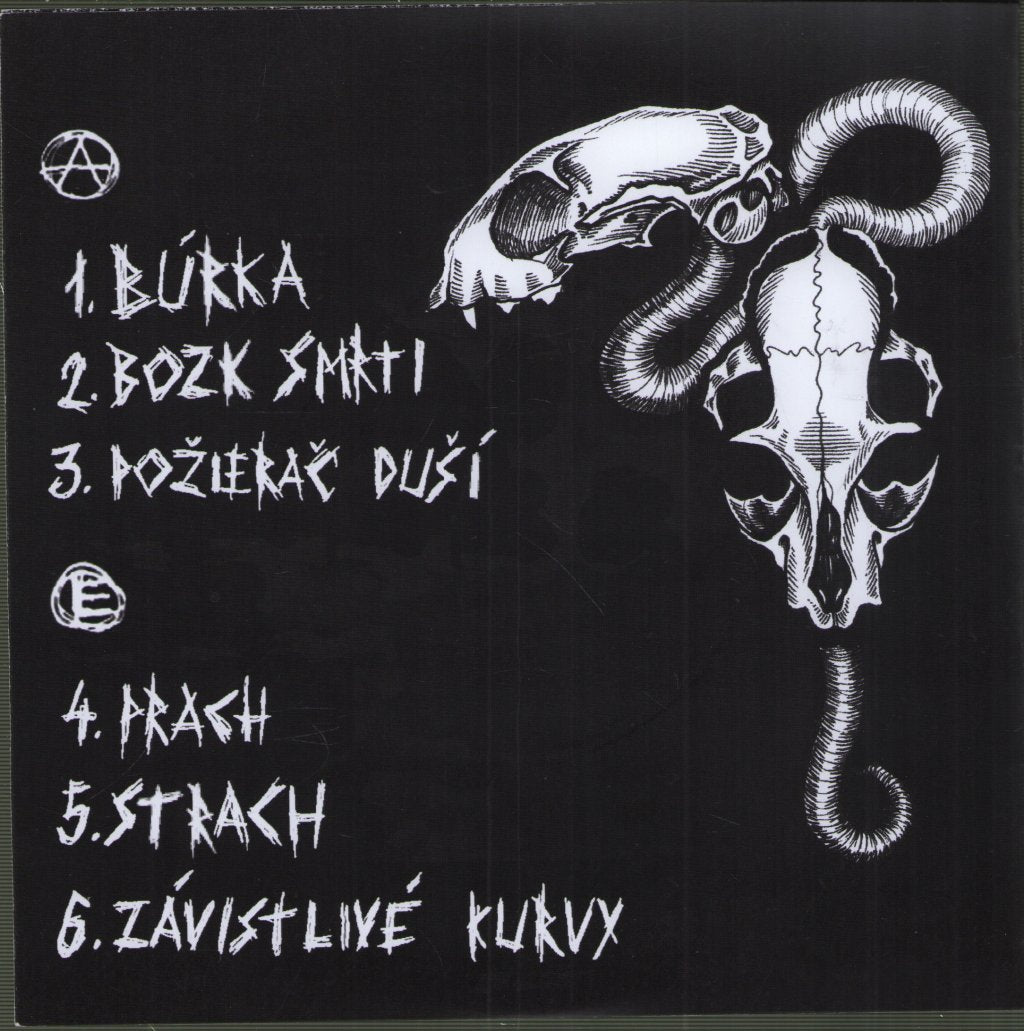 A
1. BÚRKA
2. BOZK SMRTI
3. POŽIERAČ DUŠÍ
E
4. PRACH
5. STRACH
6. ZÁVISTLIVÉ KURVY